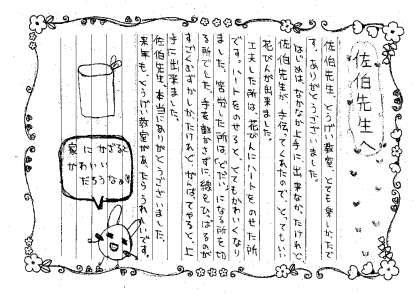 佐伯先生へ
佐伯先生、とうげい教室、とても楽しかったで
す。ありがとうございました。
はじめは、なかなか上手に出来なかったけれど、
佐伯先生が手伝ってくれたので、とってもいい
花びんが出来ました。
工夫した所は、花びんにハートをのせた所
です。ハートをのせると、とてもかわいくなり
ました。苦労した所は、どだいになる所を切
る所でした。手を動かさずに、線をひっぱるのが
すごくむずかしかったけれど、がんばってやると、上
手に出来ました。
佐伯先生、本当にありがとうございました。
来年も、とうげい教室があったらうれしいです。
家にかざると
かわいい
だろうなぁ